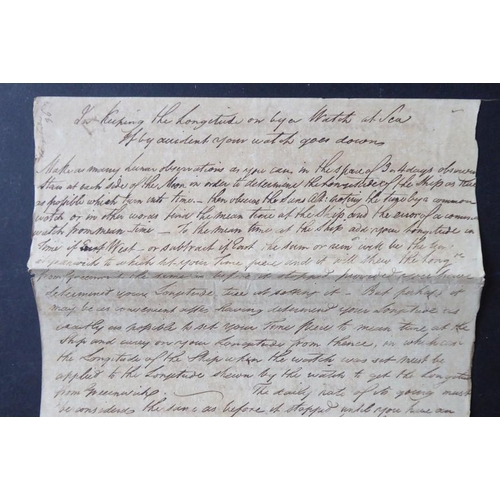 For Keeping the Longitude on by a Watch at Sea
If by accident your watch goes down
Make as many lunar observations as you can in the space of 3 or 4 days observe
Stars at each side of the Moon in order to determine the Longitude of the Ship as near
as possible which turn into time - then observe the Suns Alt. noting the time by a common
watch or in other words find the mean time at the Ship and the error of a common
watch from mean time - To the mean time at the Ship add your Longitude in
time if West - or subtract if East the sum or
to which set your Time piece and it will shew the Long
from Greenwich
determined your Longitude true at setting it - But perhaps it
may be as convenient after having determined your Longitude as
exactly as possible to set your Time piece to mean time at the
Ship and carry on your Longitude from thence, in which case
the Longitude of the Ship when the watch was set must be
applied to the Longitude shewn by the watch to get the Longitude
from Greenwich. The daily rate of its going must
be considered the same as before it stopped until you have an